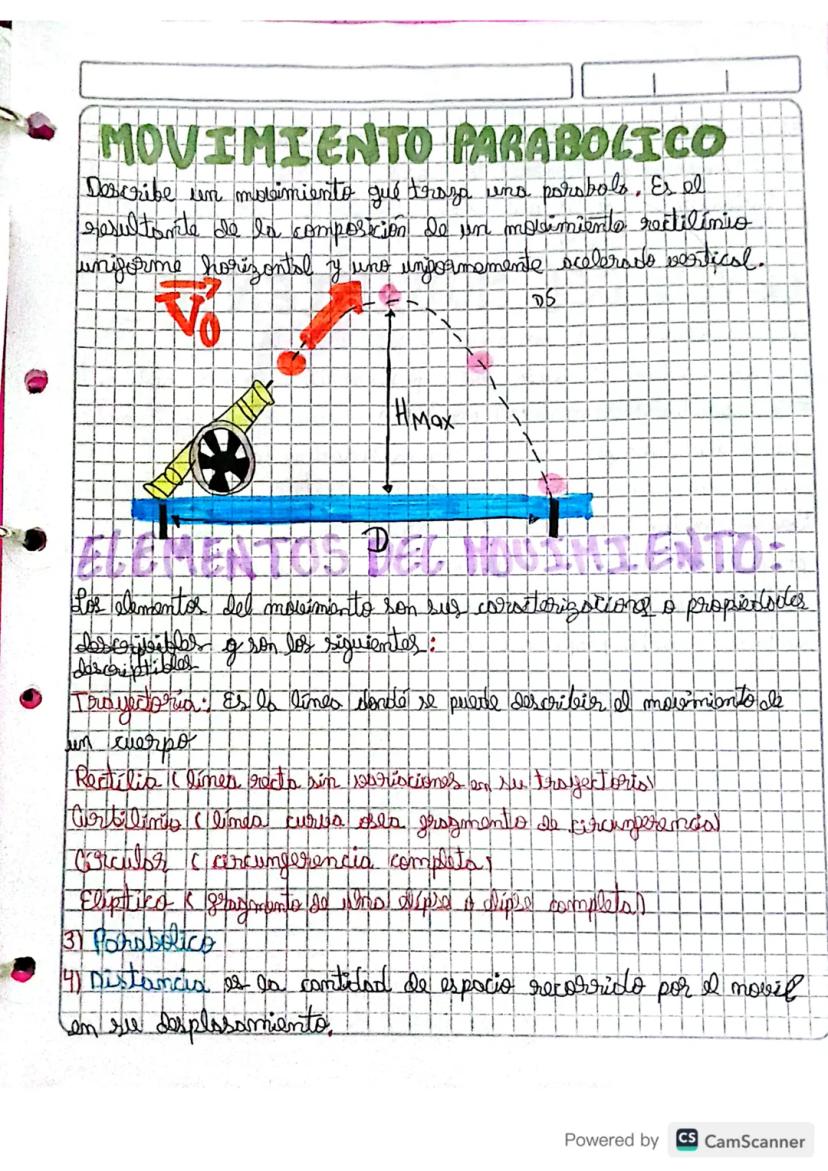 MOVIMIENTO PARABOLICO
Describe un movimiento qué traza una parabola. Es el
resultante de la composición de un movimiento rectilínio
uniforme horizontal y uno unformemente acelerado vertical.
DS
V0
HMax
D
ELEMENTOS DEL MOVIMIENTO:
Los elementos del movimiento son sus o propiedades
describibles y son los siguientes:
descriptibles
Trayectoria: Es la línea dondé se puede describir el movimiento de
un cuerpo
Rectilia (línea recta sin variaciones en su trayectoria)
Curbilinio (línea curva osea fragmento de circunferencia)
Circular (circunferencia completa)
Elíptica (fragmento de una elipse o elipse completa)
3) Parabolico
4) Distancia es la cantidad de espacio recorrido por el movil
en su desplasamiento.
Powered by CS CamScanner